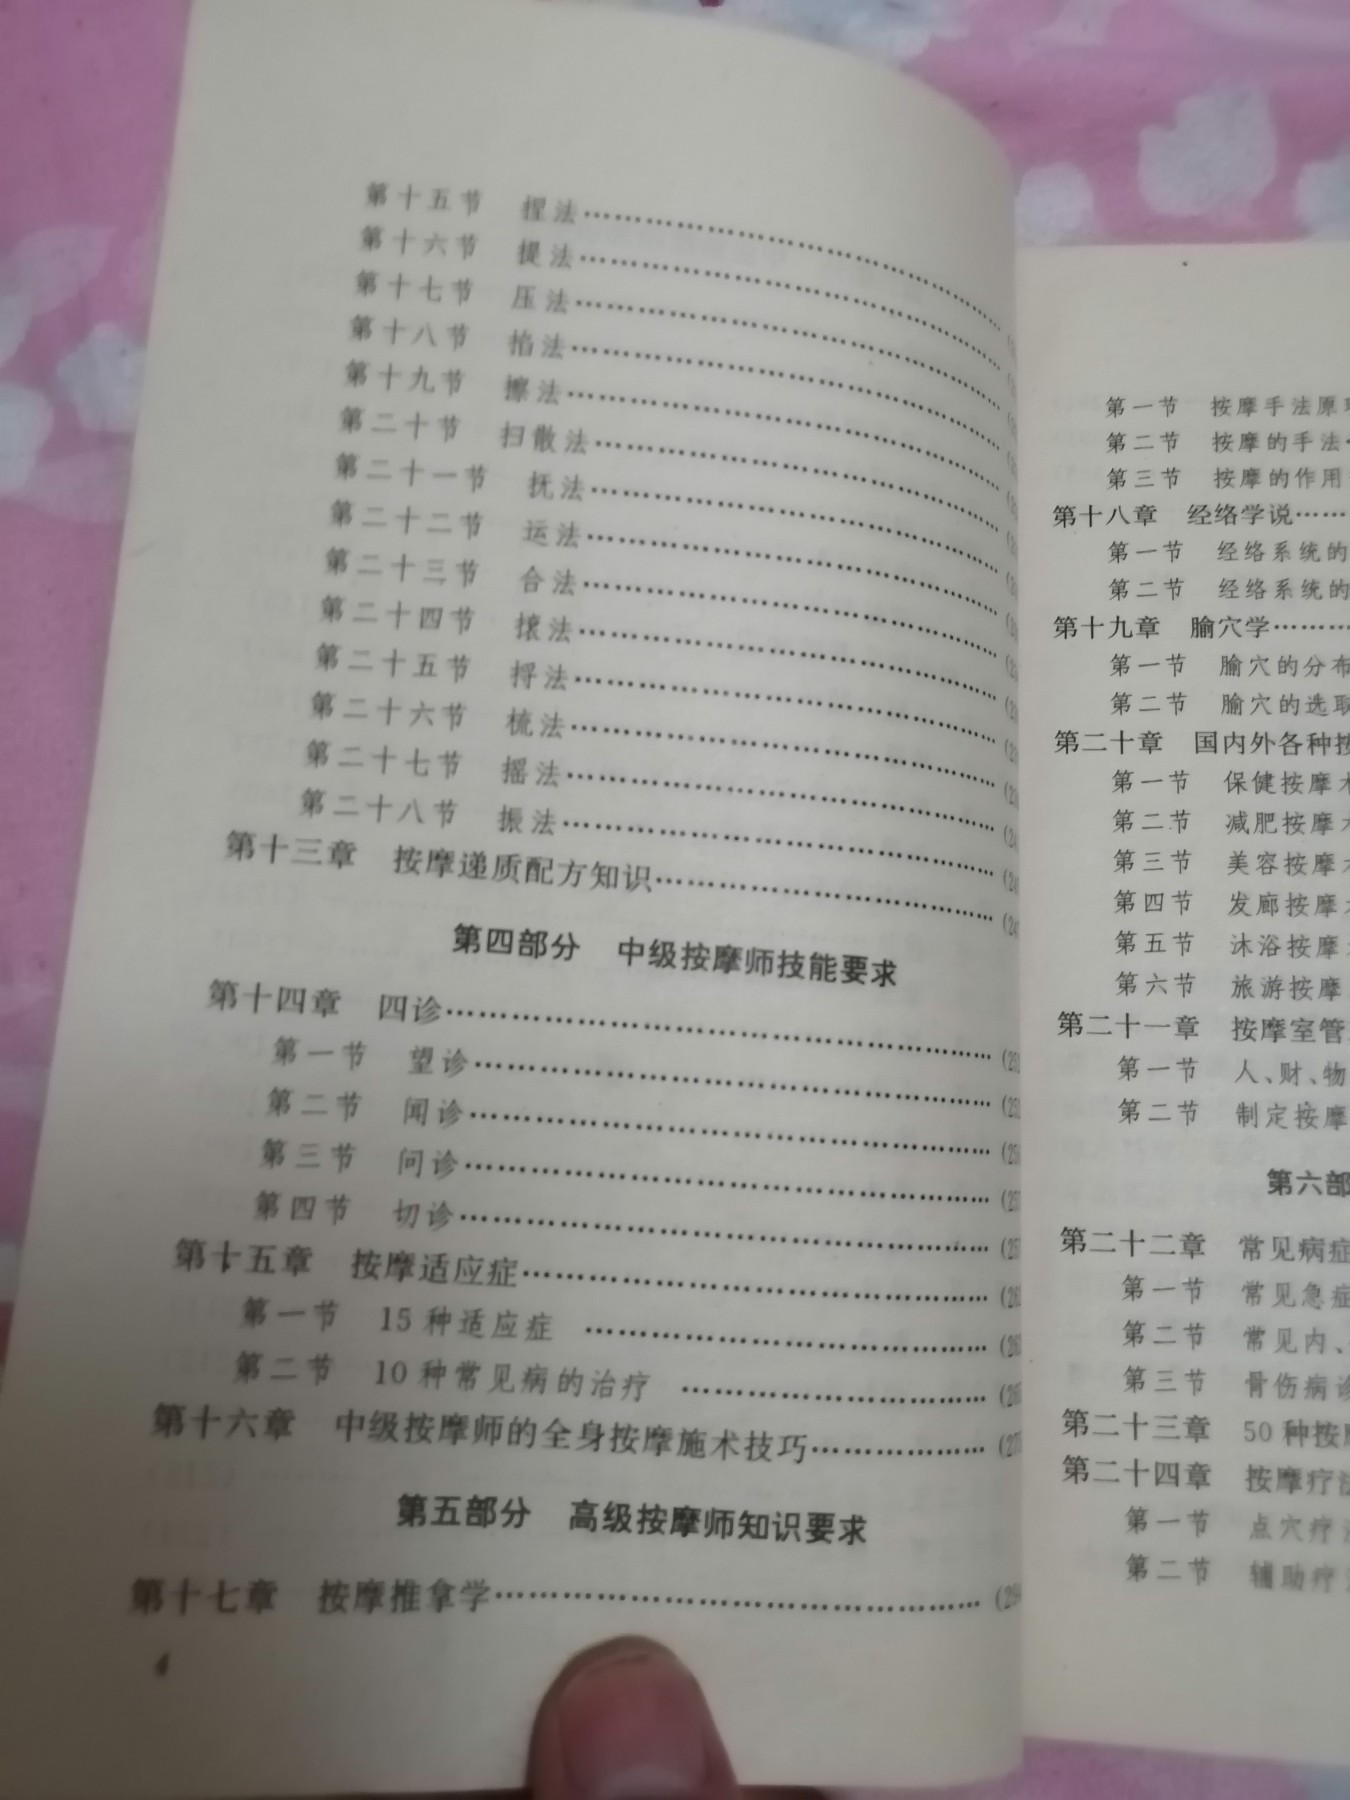 第十五节 捏法……
第十六节 提法……
第十七节 压法……
第十八节 掐法……
第十九节 擦法……
第二十节 扫散法……
第二十一节 抚法……
第二十二节 运法……
第二十三节 合法……
第二十四节 㨰法……
第二十五节 捋法……
第二十六节 梳法……
第二十七节 摇法……
第二十八节 振法……
第十三章 按摩递质配方知识……
第四部分 中级按摩师技能要求
第十四章 四诊……
第一节 望诊……
第二节 闻诊……
第三节 问诊……
第四节 切诊……
第十五章 按摩适应症……
第一节 15种适应症……
第二节 10种常见病的治疗……
第十六章 中级按摩师的全身按摩施术技巧……
第五部分 高级按摩师知识要求
第十七章 按摩推拿学……
4
第一节 按摩手法原
第二节 按摩的手法
第三节 按摩的作用
第十八章 经络学说……
第一节 经络系统的
第二节 经络系统的
第十九章 腧穴学……
第一节 腧穴的分布
第二节 腧穴的选取
第二十章 国内外各种按
第一节 保健按摩术
第二节 减肥按摩术
第三节 美容按摩术
第四节 发廊按摩
第五节 沐浴按摩
第六节 旅游按摩
第二十一章 按摩室管
第一节 人、财、物
第二节 制定按摩
第六部
第二十二章 常见病症
第一节 常见急症
第二节 常见内、
第三节 骨伤病诊
第二十三章 50种按
第二十四章 按摩疗法
第一节 点穴疗
第二节 辅助疗